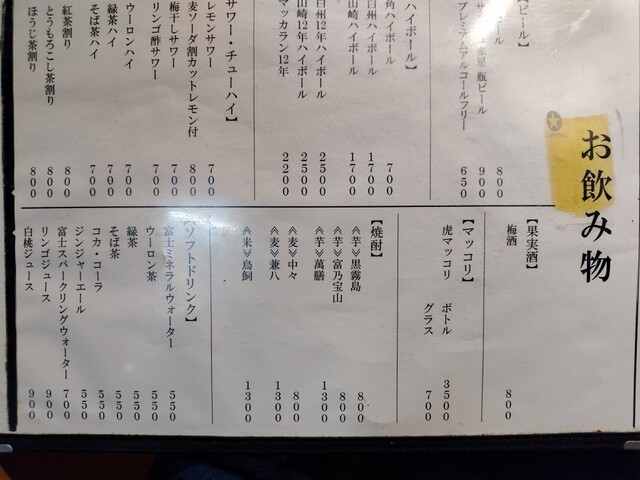 お飲み物
ビール】
ール 800
赤星 瓶ビール 900
プレミアムアルコールフリー 650
ハイボール】
角ハイボール 700
白州ハイボール 1700
山崎ハイボール 1700
白州12年ハイボール 2500
山崎12年ハイボール 2500
マッカラン12年 2200
サワー・チューハイ】
レモンサワー 700
麦ソーダ割カットレモン付 800
梅干しサワー 700
リンゴ酢サワー 700
ウーロンハイ 700
緑茶ハイ 700
そば茶ハイ 700
紅茶割り 800
とうもろこし茶割り 800
ほうじ茶割り 800
【果実酒】
梅酒 800
【マッコリ】
虎マッコリ ボトル 3500
グラス 700
【焼酎】
《芋》黒霧島 800
《芋》富乃宝山 800
《芋》萬膳 1300
《麦》中々 800
《麦》兼八 1300
《米》鳥飼 1300
【ソフトドリンク】
富士ミネラルウォーター 550
ウーロン茶 550
緑茶 550
そば茶 550
コカ・コーラ 550
ジンジャーエール 550
富士スパークリングウォーター 700
リンゴジュース 900
白桃ジュース 900